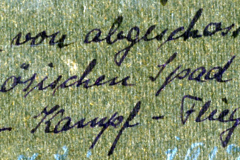 von abgeschos
ösischen Spad
- Kampf - Flieg